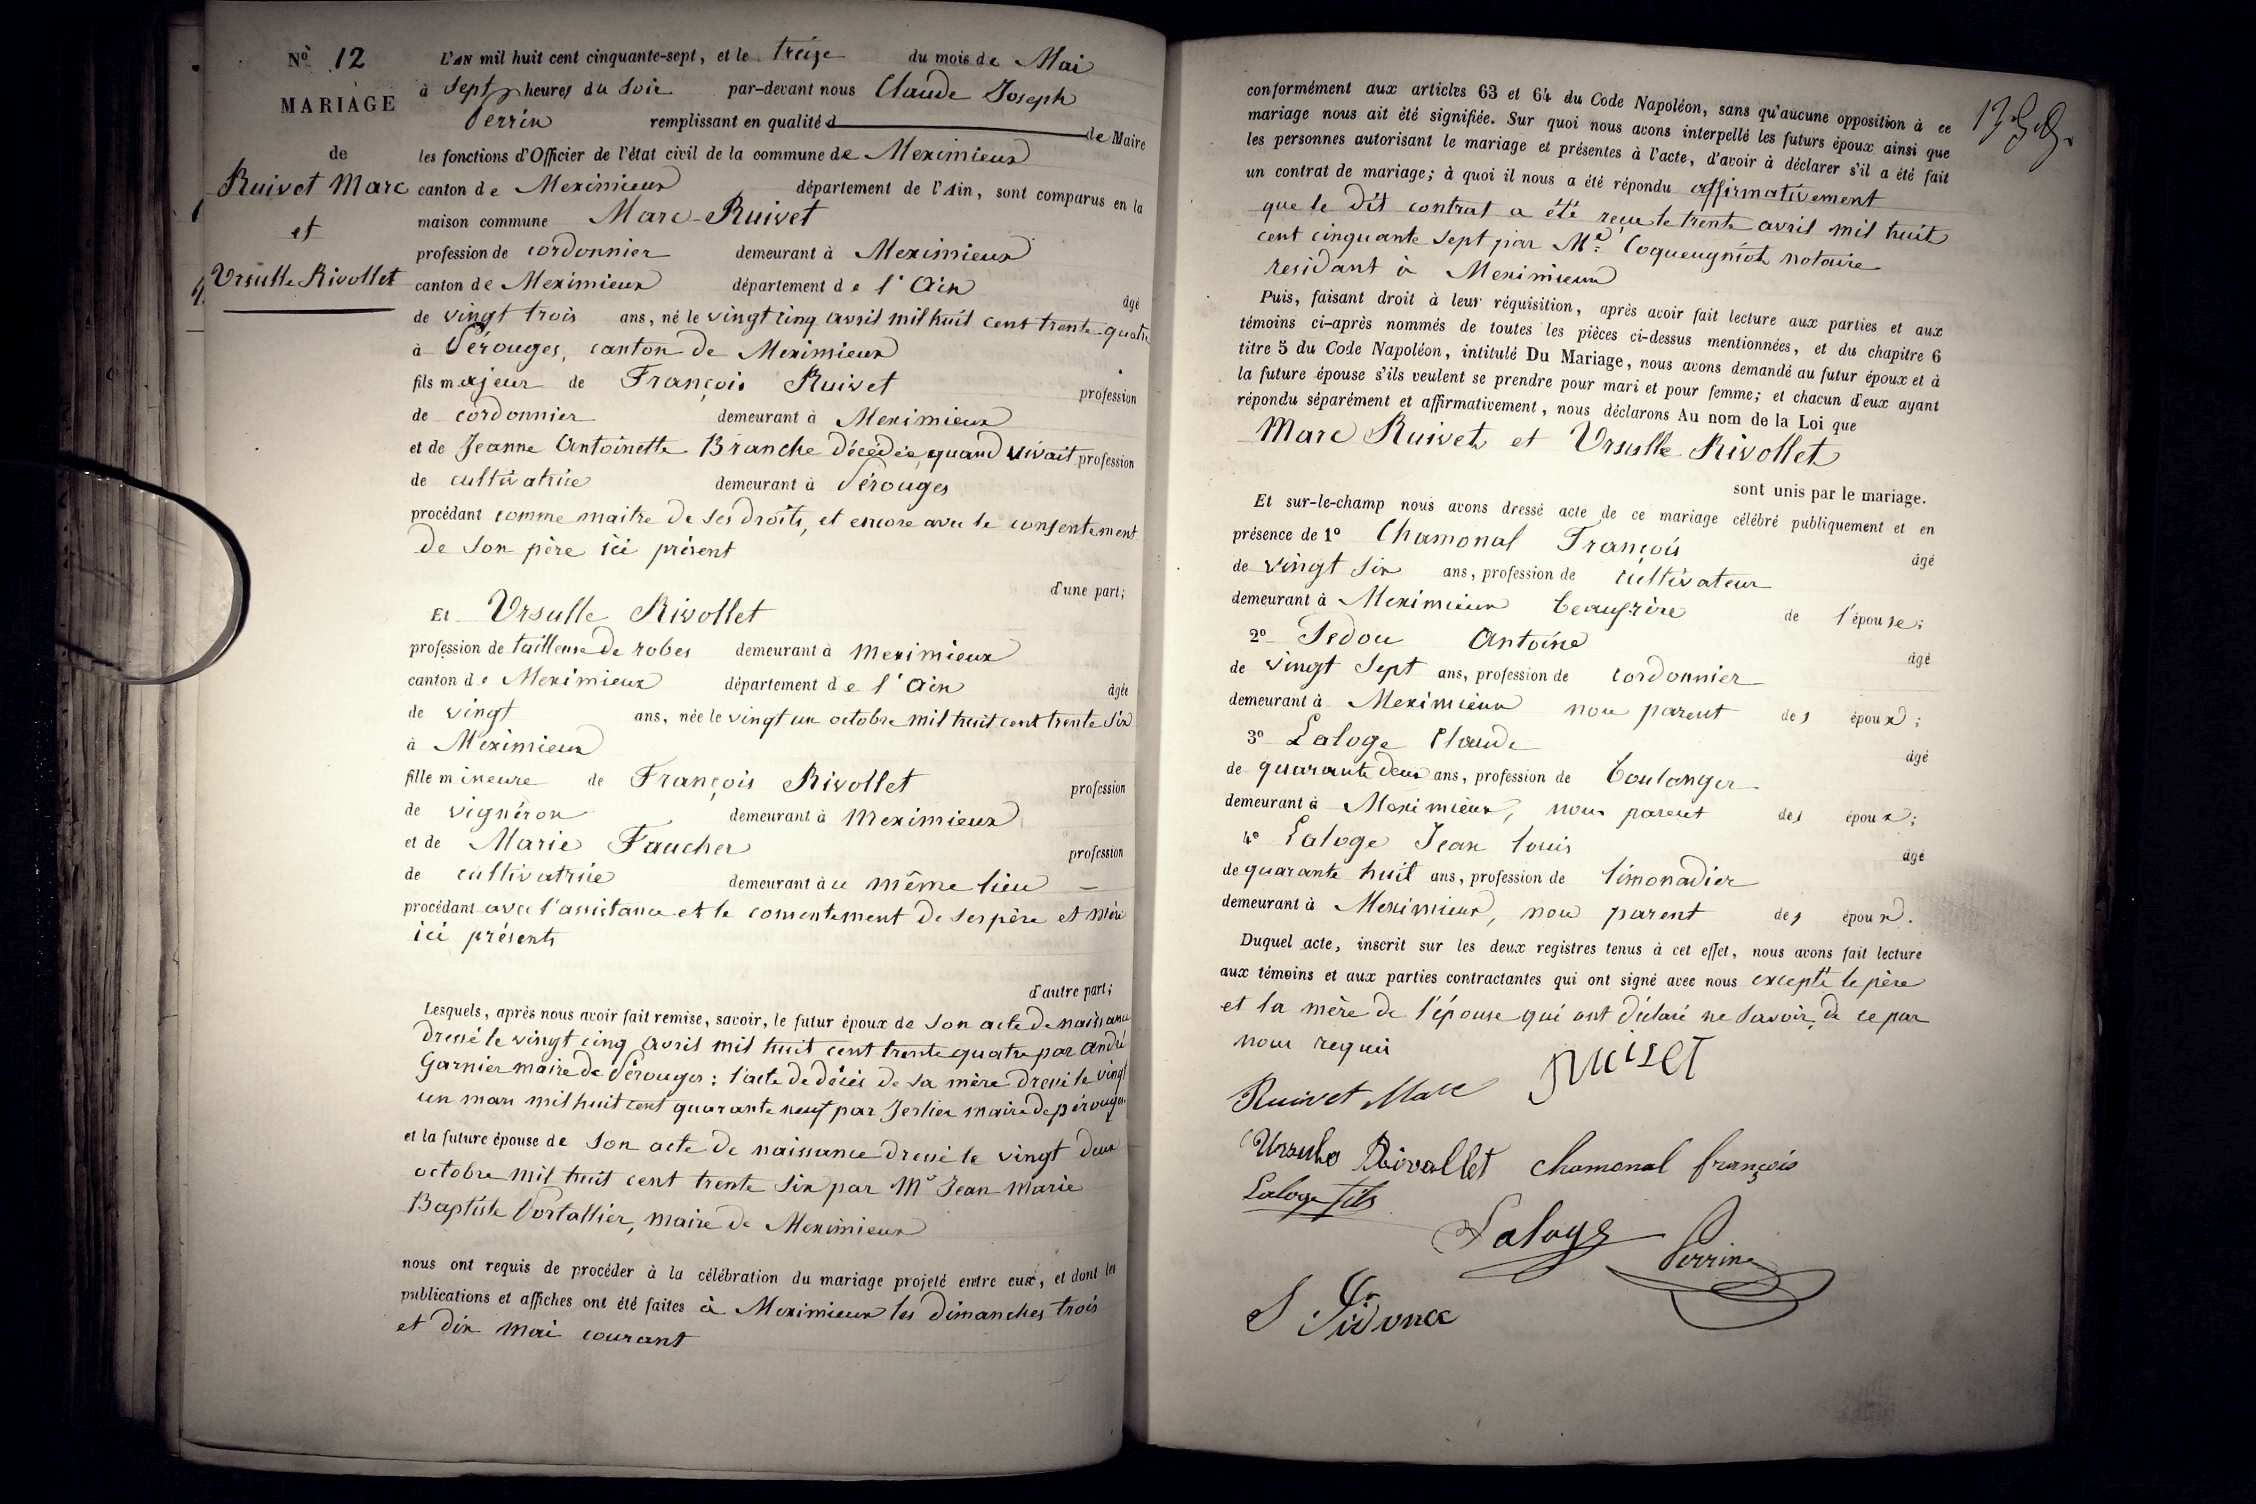 Nº 12
MARIAGE
de
Ruivet Marc
et
Ursulle Rivollet
L'AN mil huit cent cinquante-sept, et le treize du mois de Mai
à Sept heures du Soir par-devant nous Claude Joseph
Perrin remplissant en qualité d de Maire
les fonctions d'Officier de l'état civil de la commune de Meximieux
canton de Meximieux département de l'Ain, sont comparus en la
maison commune Marc Ruivet
profession de cordonnier demeurant à Meximieux
canton de Meximieux département de l'Ain âgé
de vingt trois ans, né le vingt cinq avril mil huit cent trente quatre
à Pérouges, canton de Meximieux
fils majeur de François Ruivet profession
de cordonnier demeurant à Meximieux
et de Jeanne Antoinette Branche décédée, quand vivait profession
de cultivatrice demeurant à Pérouges
procédant comme maitre de ses droits, et encore avec le consentement
de son père ici présent
d'une part;
Et Ursulle Rivollet
profession de tailleuse de robes demeurant à Meximieux
canton de Meximieux département de l'Ain âgée
de vingt ans, née le vingt un octobre mil huit cent trente six
à Meximieux
fille mineure de François Rivollet profession
de vignéron demeurant à Meximieux
et de Marie Faucher profession
de cultivatrice demeurant à u même lieu
procédant avec l'assistance et le consentement de ses père et mère
ici présents
d'autre part;
Lesquels, après nous avoir fait remise, savoir, le futur époux de son acte de naissance
dressé le vingt cinq avril mil huit cent trente quatre par André
Garnier maire de Pérouges: l'acte de décès de sa mère dressé le vingt
un mars mil huit cent quarante neuf par Jerlier maire de pérouges
et la future épouse de son acte de naissance dressé le vingt deux
octobre mil huit cent trente six par Mr Jean Marie
Baptiste Portallier, maire de Meximieux
nous ont requis de procéder à la célébration du mariage projeté entre eux, et dont les
publications et affiches ont été faites à Meximieux les dimanches trois
et dix mai courant
conformément aux articles 63 et 64 du Code Napoléon, sans qu'aucune opposition à ce
mariage nous ait été signifiée. Sur quoi nous avons interpellé les futurs époux ainsi que
les personnes autorisant le mariage et présentes à l'acte, d'avoir à déclarer s'il a été fait
un contrat de mariage; à quoi il nous a été répondu affirmativement
que le dit contrat a été reçu le trente avril mil huit
cent cinquante sept par Me Coqueugniot notaire
residant à Meximieux
Puis, faisant droit à leur réquisition, après avoir fait lecture aux parties et aux
témoins ci-après nommés de toutes les pièces ci-dessus mentionnées, et du chapitre 6
titre 5 du Code Napoléon, intitulé Du Mariage, nous avons demandé au futur époux et à
la future épouse s'ils veulent se prendre pour mari et pour femme; et chacun d'eux ayant
répondu séparément et affirmativement, nous déclarons Au nom de la Loi que
Marc Ruivet et Ursulle Rivollet
sont unis par le mariage.
Et sur-le-champ nous avons dressé acte de ce mariage célébré publiquement et en
présence de 1º Chamonal François âgé
de vingt six ans, profession de cultivateur
demeurant à Meximieux beaufrère de l'épouse;
2º Antoine âgé
de vingt sept ans, profession de cordonnier
demeurant à Meximieux non parent des époux;
3º Laloge Claude âgé
de quarante deux ans, profession de boulanger
demeurant à Meximieux, non parent des époux;
4º Laloge Jean Louis âgé
de quarante huit ans, profession de limonadier
demeurant à Meximieux, non parent des époux.
Duquel acte, inscrit sur les deux registres tenus à cet effet, nous avons fait lecture
aux témoins et aux parties contractantes qui ont signé avec nous excepté le père
et la mère de l'épouse qui ont déclaré ne savoir, de ce par
nous requis
Ruivet Marc Ruivet
Ursule Rivollet chamonal françois
Laloge fils
Laloge Perrin